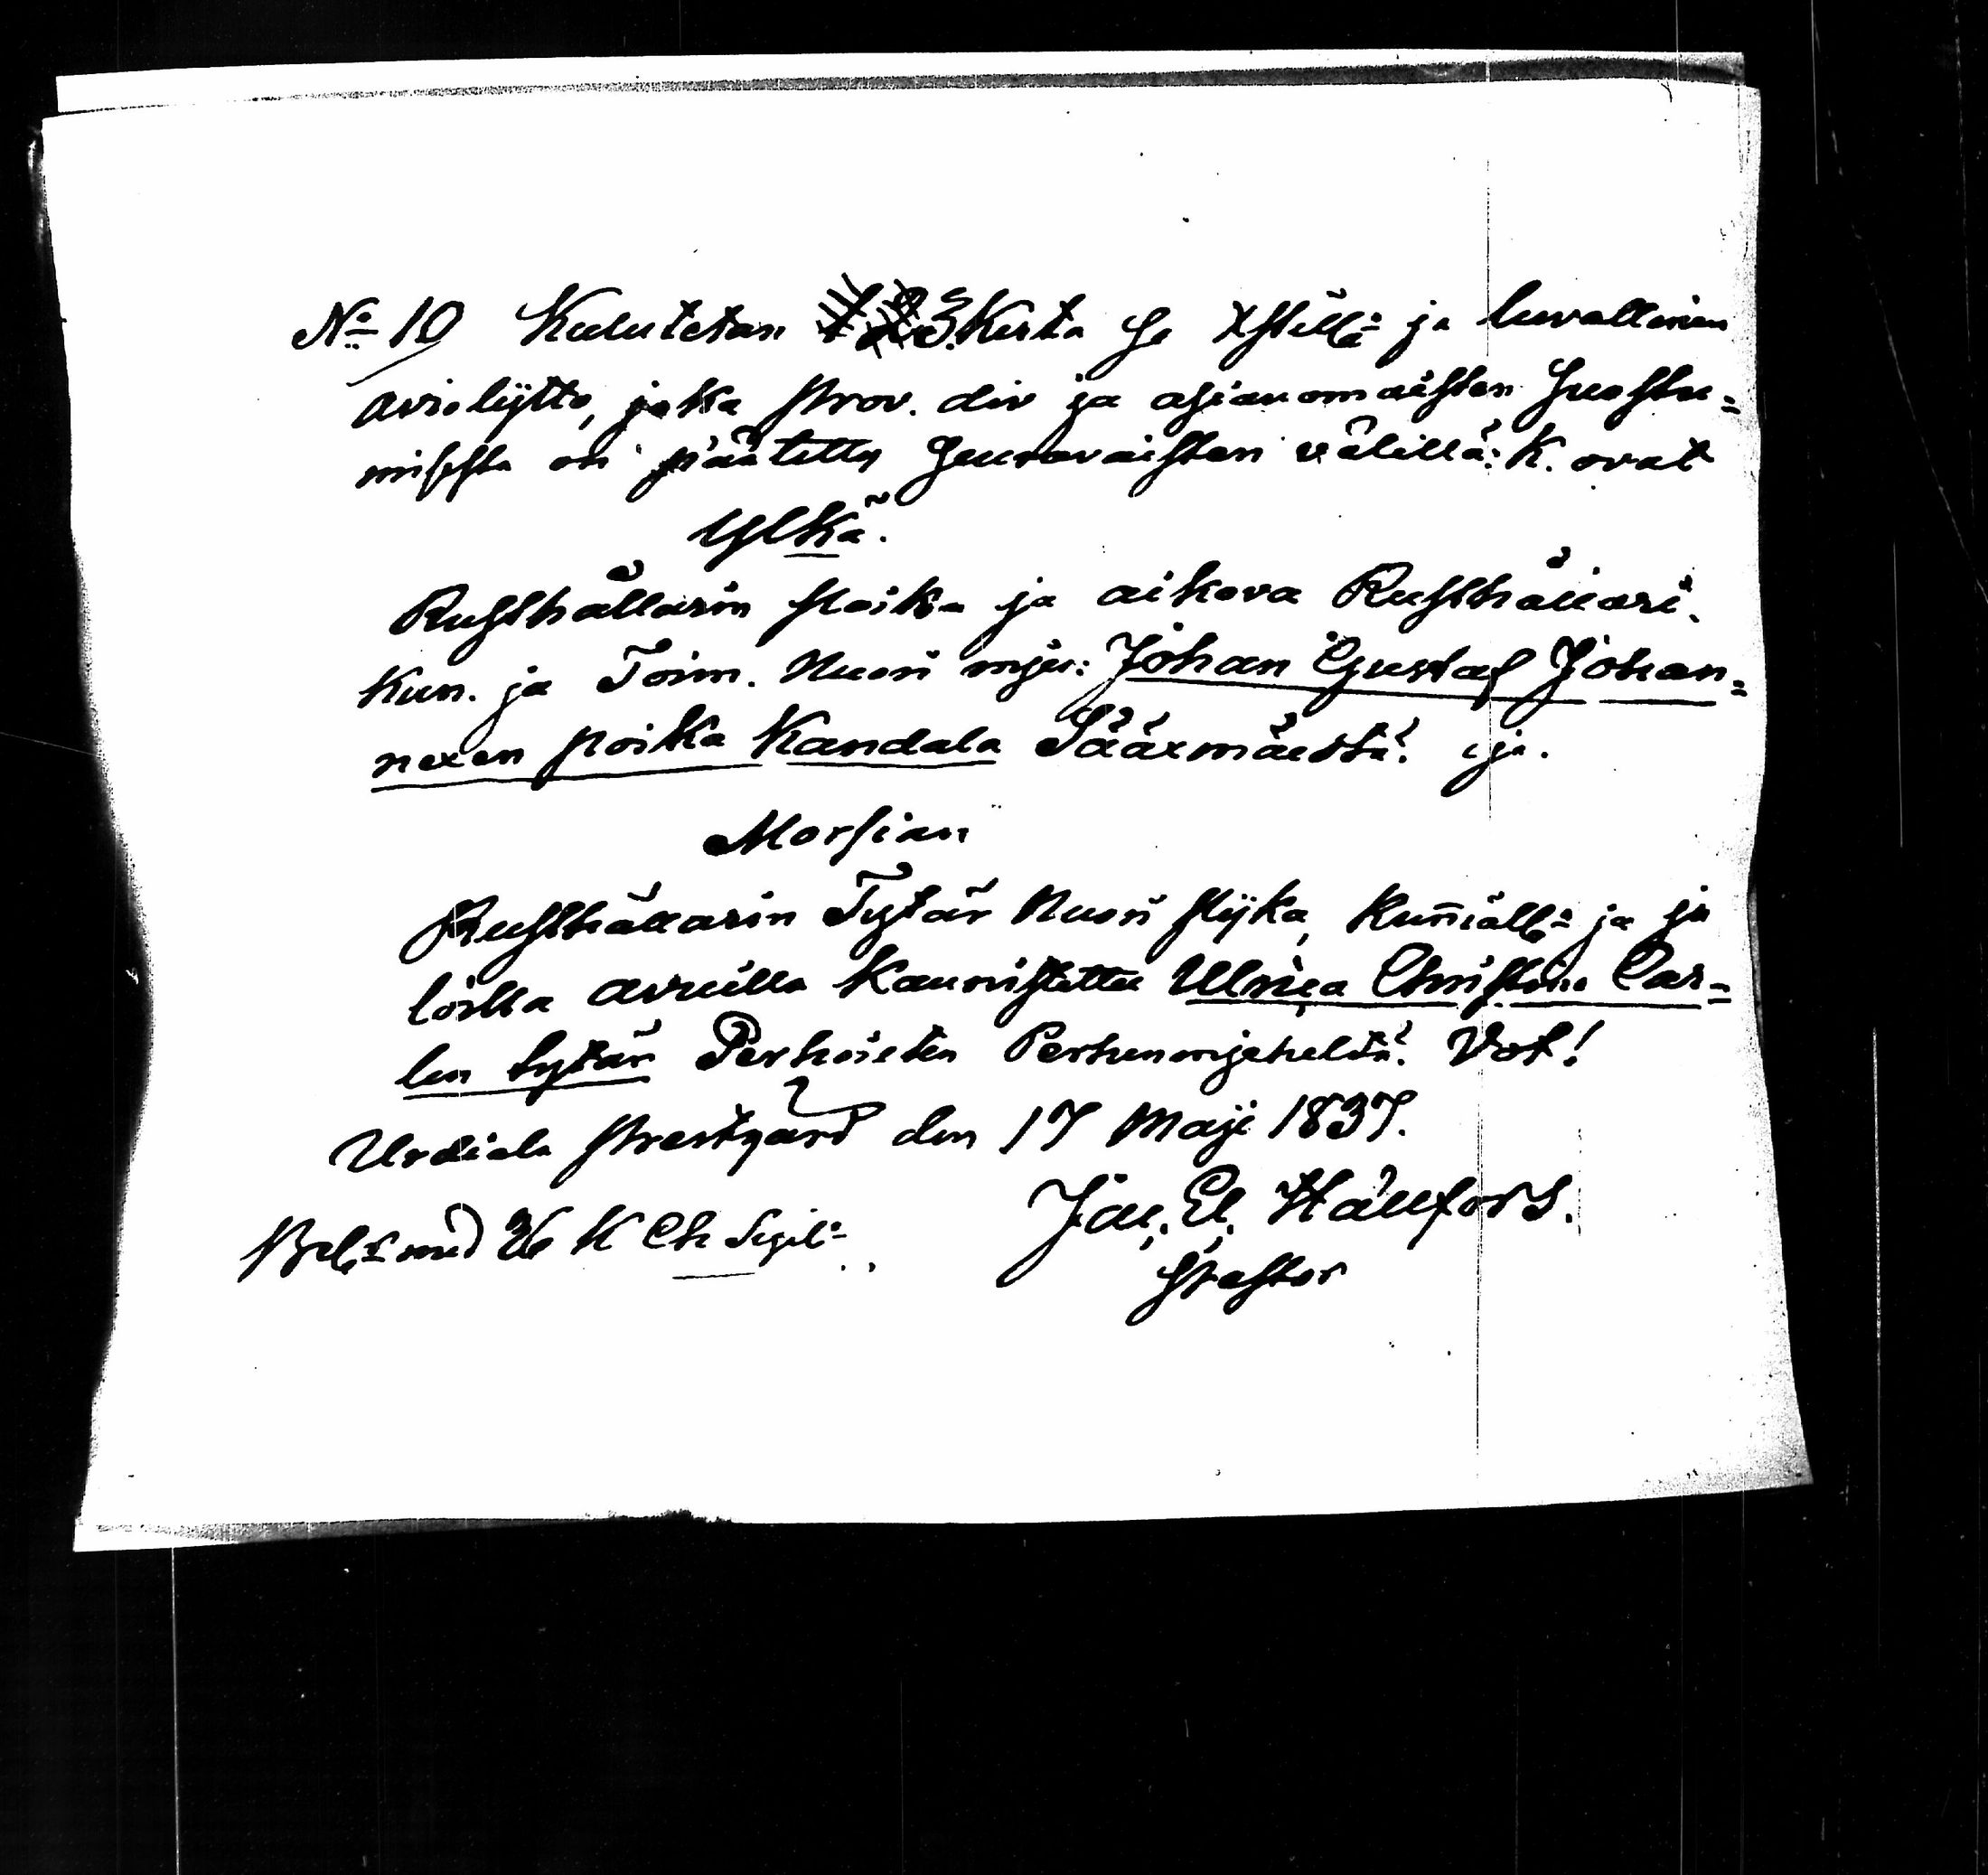 No 10 Kulutetan 1. 2. 3. Kerta Se Xstill: ja luvallinen
avioliitto, joka prov. div ja asianomaisten Suostu=
misesta on päätetty Seuravaisten välillä: K. ovat
Ylkä.
Rusthållarin poika ja aikova Rusthållari.
Kun. ja Toim. Nuori mjes: Johan Gustaf Johan=
nexen poika Kandala Sääxmäestä: ja.
Morsian
Rusthållarin Tytär Nuori pijka, Kuniall: ja ja
loilla avuilla Kaunistettu Ulrica Christina Car=
len tytär Perhoisten Perhenmjeheldä. Vot!
Urdiala Prestgård den 17 Maji 1837.
Jac. El. Hällfors.
med K Ch Sigil:
Pastor